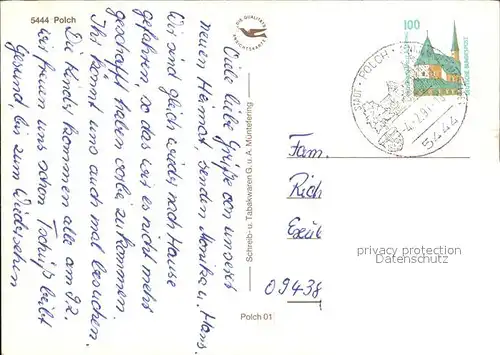 5444 Polch
Viele liebe Grüße von unserer
neuen Heimat, senden Monika u. Hans.
Wir sind gleich wieder nach Hause
gefahren, so das wir es nicht mehr
geschafft haben vorbei zukommen.
Ihr könnt uns auch mal besuchen.
Die Kinder kommen alle am 9.2.
wir freuen uns schon. Tschüß bleibt
Gesund, bis zum Wiedersehen
DIE QUALITÄTS
ANSICHTSKARTE
Schreib- u. Tabakwaren G. u. A. Müntefering
Polch 01
100
DEUTSCHE BUNDESPOST
POLCH
5444
Fam.
Rich
09438
privacy protection